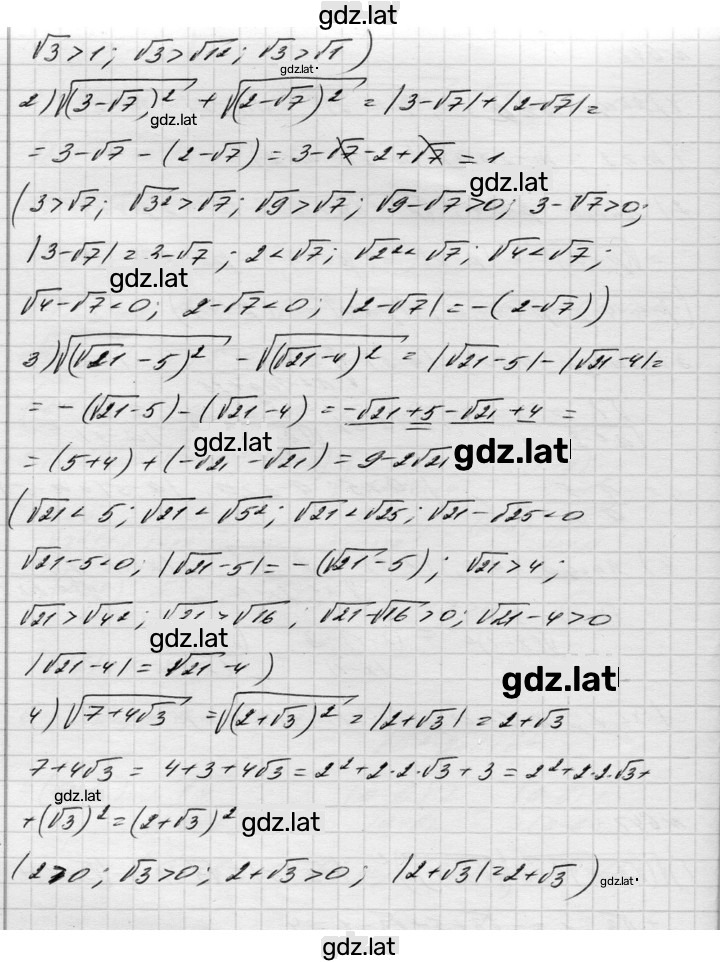 gdz.lat
√3>1; √3>√1²; √3>√1)
gdz.lat
2) √(3-√7)² + √(2-√7)² = |3-√7|+|2-√7|=
gdz.lat
= 3-√7 - (2-√7) = 3-√7-2+√7 = 1
gdz.lat
(3>√7; √3²>√7; √9>√7; √9-√7>0; 3-√7>0;
|3-√7|=3-√7; 2<√7; √2²<√7; √4<√7;
gdz.lat
√4-√7<0; 2-√7<0; |2-√7|=-(2-√7))
3) √(√21-5)² - √(√21-4)² = |√21-5|-|√21-4|=
= -(√21-5)-(√21-4) = -√21+5-√21+4 =
gdz.lat
= (5+4)+(-√21-√21) = 9-2√21
gdz.lat
(√21<5; √21<√5²; √21<√25; √21-√25<0
√21-5<0; |√21-5|=-(√21-5); √21>4;
√21>√4²; √21>√16; √21-√16>0; √21-4>0
gdz.lat
|√21-4|=√21-4)
gdz.lat
4) √7+4√3 = √(2+√3)² = |2+√3| = 2+√3
7+4√3 = 4+3+4√3 = 2²+2·2·√3+3 = 2²+2·2·√3+
gdz.lat
+(√3)² = (2+√3)²
gdz.lat
(2>0; √3>0; 2+√3>0; |2+√3|=2+√3)
gdz.lat
gdz.lat